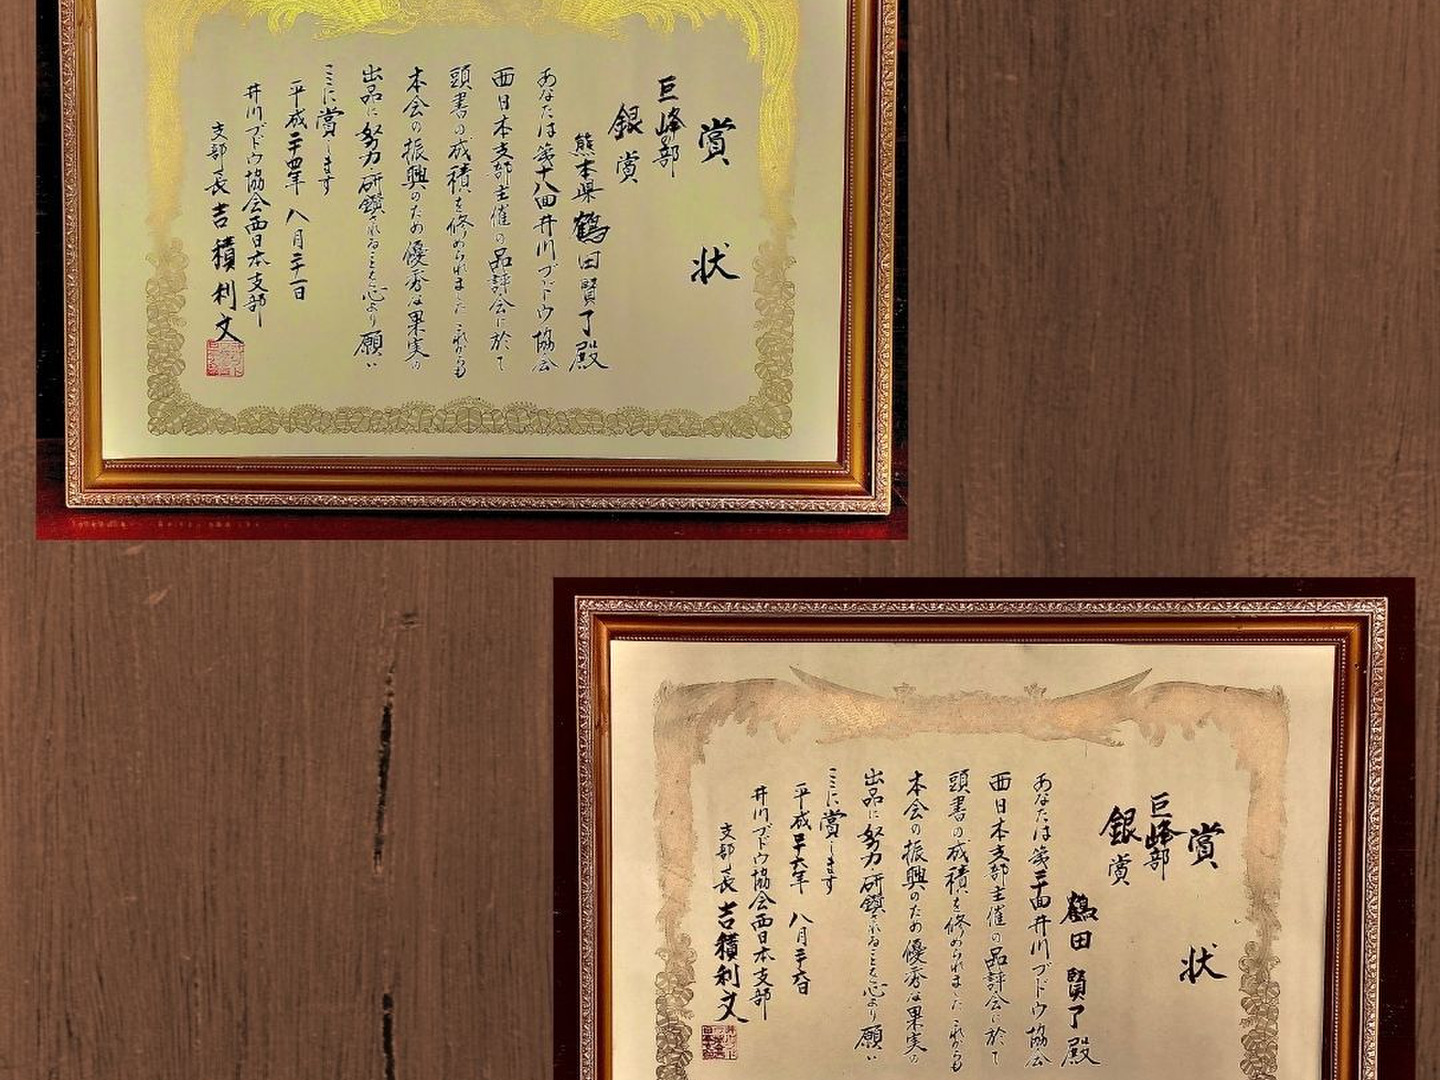 賞状
巨峰部
銀賞
熊本県 鶴田賢了殿
あなたは第十八回井川ブドウ協会
西日本支部主催の品評会に於て
頭書の成績を修められました これからも
本会の振興のため優秀な果実の
出品に努力研鑽されることを心より願い
ここに賞します
平成二十四年 八月二十一日
井川ブドウ協会西日本支部
支部長 吉積利文
賞状
巨峰部
銀賞
鶴田賢了殿
あなたは第二十回井川ブドウ協会
西日本支部主催の品評会に於て
頭書の成績を修められました これからも
本会の振興のため優秀な果実の
出品に努力研鑽されることを心より願い
ここに賞します
平成二十六年 八月二十六日
井川ブドウ協会西日本支部
支部長 吉積利文